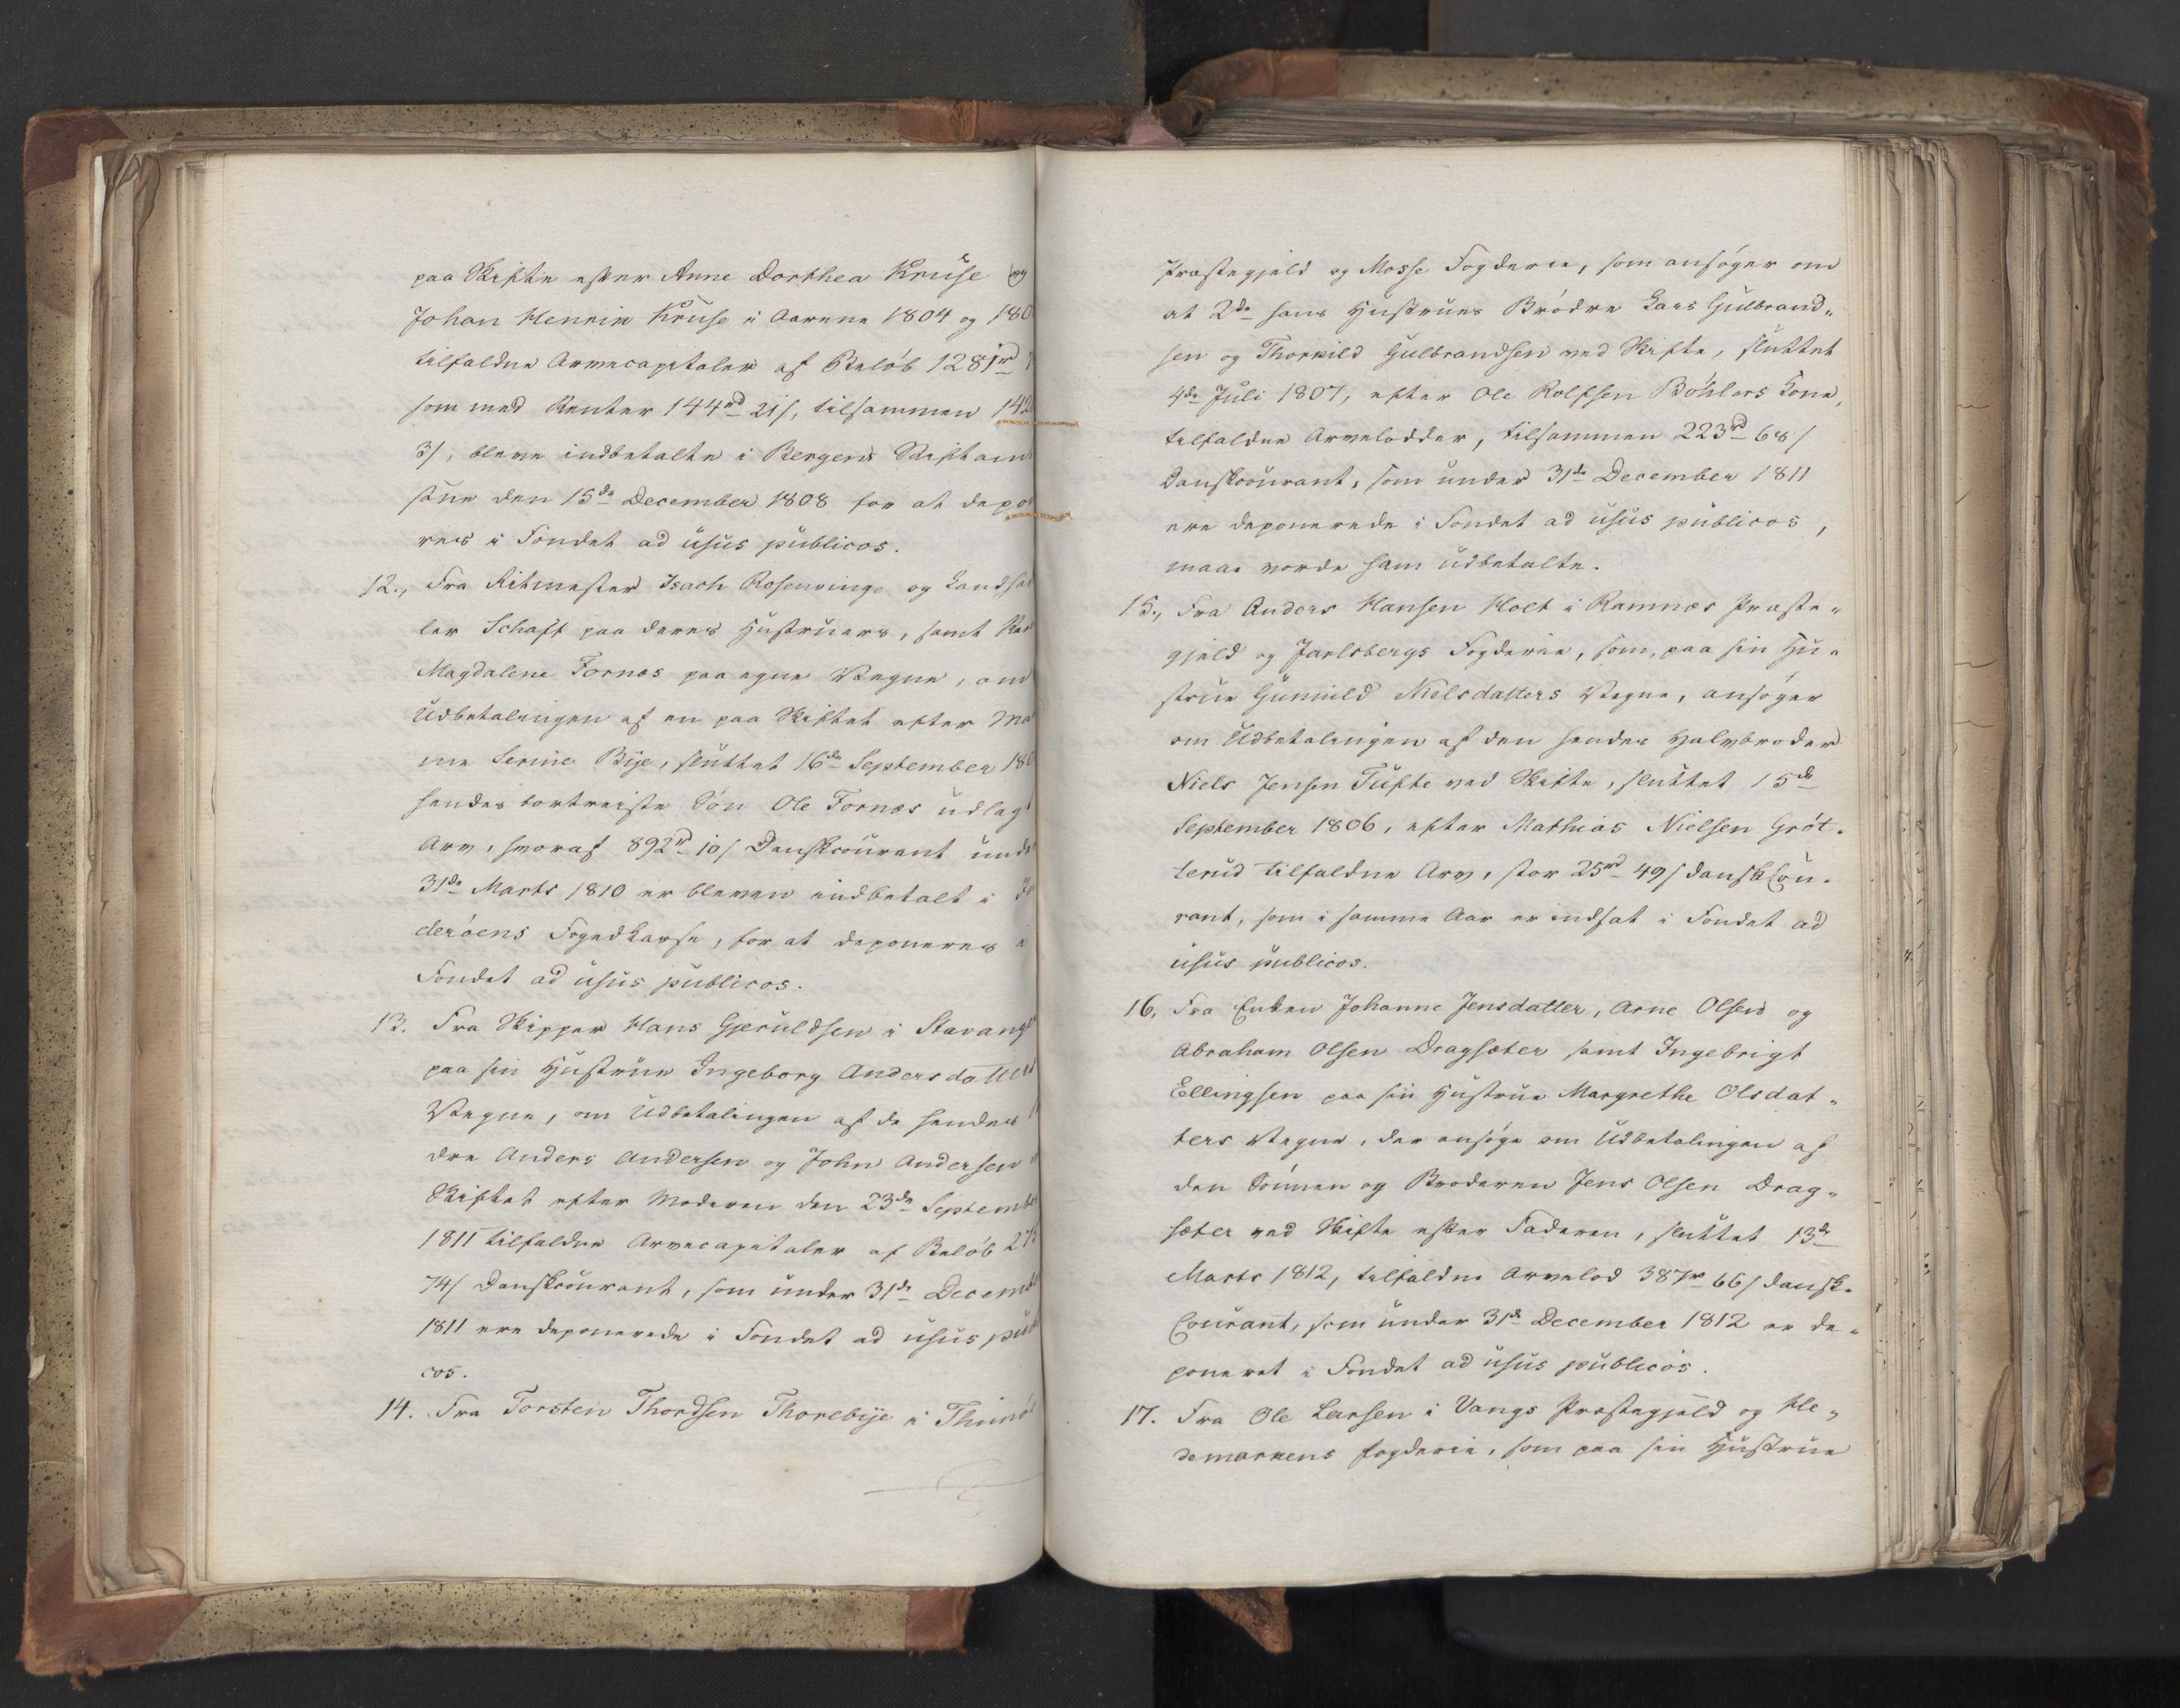 paa Skifte efter Anne Dorthea Kruse og
Johan Henrik Kruse i Aarene 1804 og 180
tilfaldne Arvecapitaler af Beløb 1281rd
som med Renter 144rd 21s, tilsammen 142
3s, bleve indbetalte i Bergens Stiftam
stue den 15de December 1808 for at depo
res i Fondet ad usus publicos.
12., Fra Ritmester Isach Rosenvinge og Landha
ler Schaft paa deres Hustruers, samt Ka
Magdalene Fornæs paa egne Vegne, om
Udbetalingen af en paa Skiftet efter Ma
me Serine Bye, sluttet 16de September 180
hendes bortreiste Søn Ole Fornæs udlagt
Arv, hvoraf 892rd 10s Danskcourant unde
31de Marts 1810 er bleven indbetalt i In
derøens Fogedkasse, for at deponeres i
Fondet ad usus publicos.
13. Fra Skipper Hans Gjeruldsen i Stavange
paa sin Hustrue Ingeborg Andersdatters
Vegne, om Udbetalingen af de hendes
dre Anders Andersen og John Andersen
Skiftet efter Moderen den 23de September
1811 tilfaldne Arvecapitaler af Beløb 275
74s Danskcourant, som under 31de Decemb
1811 ere deponerede i Fondet ad usus publ
cos.
14. Fra Torsten Thordsen Thorebye i Thunø
Præstegjeld og Mosse Fogderie, som ansøger om
at 2de hans Hustrues Brødre Lars Gulbrand„
sen og Thorkild Gulbrandsen ved Skifte, sluttet
4de Juli 1807, efter Ole Rolfsen Bøhlers Kone,
tilfaldne Arvelodder, tilsammen 223rd 68s
Danskcourant, som under 31de December 1811
ere deponerede i Fondet ad usus publicos,
maae vorde ham udbetalte.
15., Fra Anders Hansen Holt i Ramnæs Præste„
gjeld og Jarlsbergs Fogderie, som, paa sin Hu„
strue Gunnild Nielsdatters Vegne, ansøger
om Udbetalingen af den hendes Halvbroder
Niels Jensen Tufte ved Skifte, sluttet 15de
September 1806, efter Mathias Nielsen Grøt„
terud tilfaldne Arv, stor 25rd 49s dansk Cou„
rant, som i samme Aar er indsat i Fondet ad
usus publicos.
16. Fra Enken Johanne Jensdatter, Arne Olsen og
Abraham Olsen Dragsæter samt Ingebrigt
Ellingsen paa sin Hustrue Margrethe Olsdat„
ters Vegne, der ansøge om Udbetalingen af
den Sønnen og Broderen Jens Olsen Drag„
sæter ved Skifte efter Faderen, sluttet 13de
Marts 1812, tilfaldne Arvelod 387rd 66s dansk„
Courant, som under 31de December 1812 er de„
poneret i Fondet ad usus publicos.
17. Fra Ole Larsen i Vangs Præstegjeld og He„
demarkens fogderie, som paa sin Hustrue